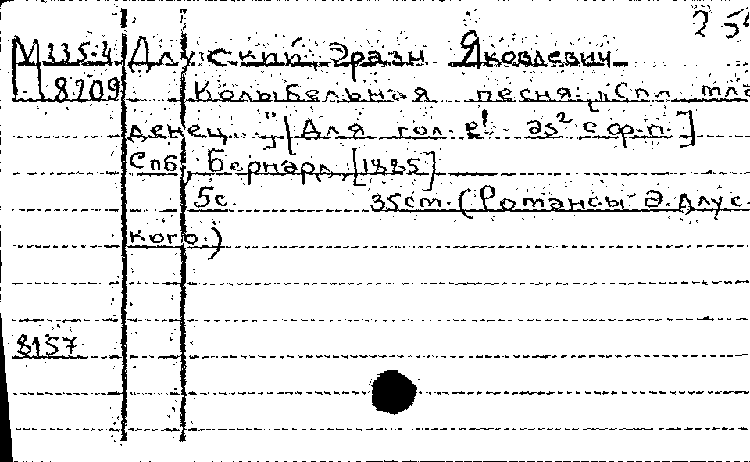 254
М 335.4 Длуский, Эразм Яковлевич
8209 Колыбельная песня: "Спи мла
денец..." [Для гол. e¹-as² с ф.-п.]
Спб, Бернард, [1885]
5с. 35см. (Романсы Э. Длус
кого.)
8157